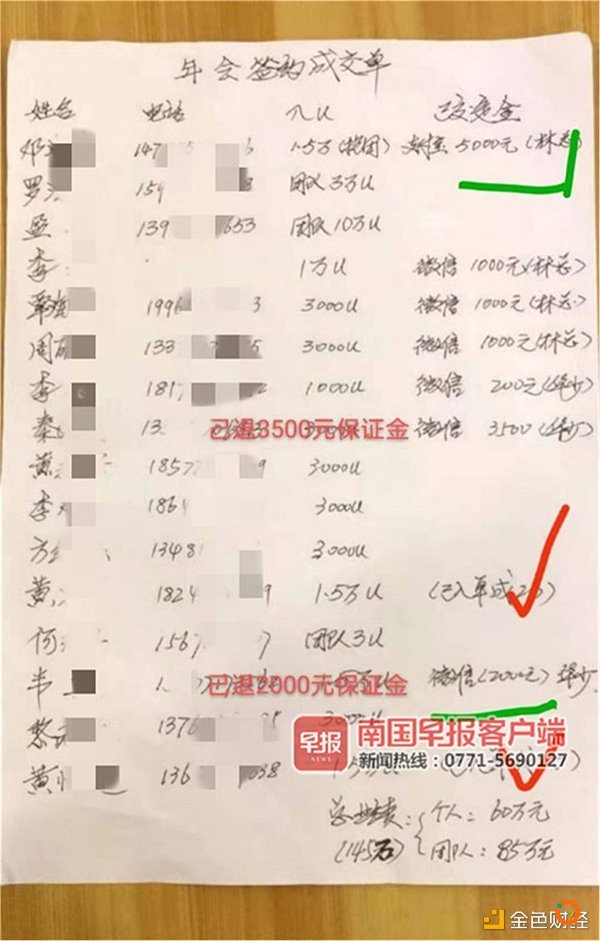 年会签约成交单
姓名 电话 入U 已交定金
邓 147 1.5万 5000元
罗 159 3 团队3万U
139 653 团队10万U
李 1万U 微信 1000元(林总)
覃 1996 3 3000U 微信 1000元(林总)
周 133 5 3000U 微信 1000元(林总)
李 1817 1000U 微信 200元
秦 13 已退3500元保证金 微信 3500
黄 1857 9 3000U
李 1861 3000U
方 1348 3000U
黄 1824 9 1.5万U
何 156 7 团队3U
韦 已退2000元保证金 微信(2000元)
黎 1376
早报 南国早报客户端
NEWS 新闻热线:0771-5690127
黄 136 038
总业绩:个人:60万元
(145万) 团队:85万元
金色财经